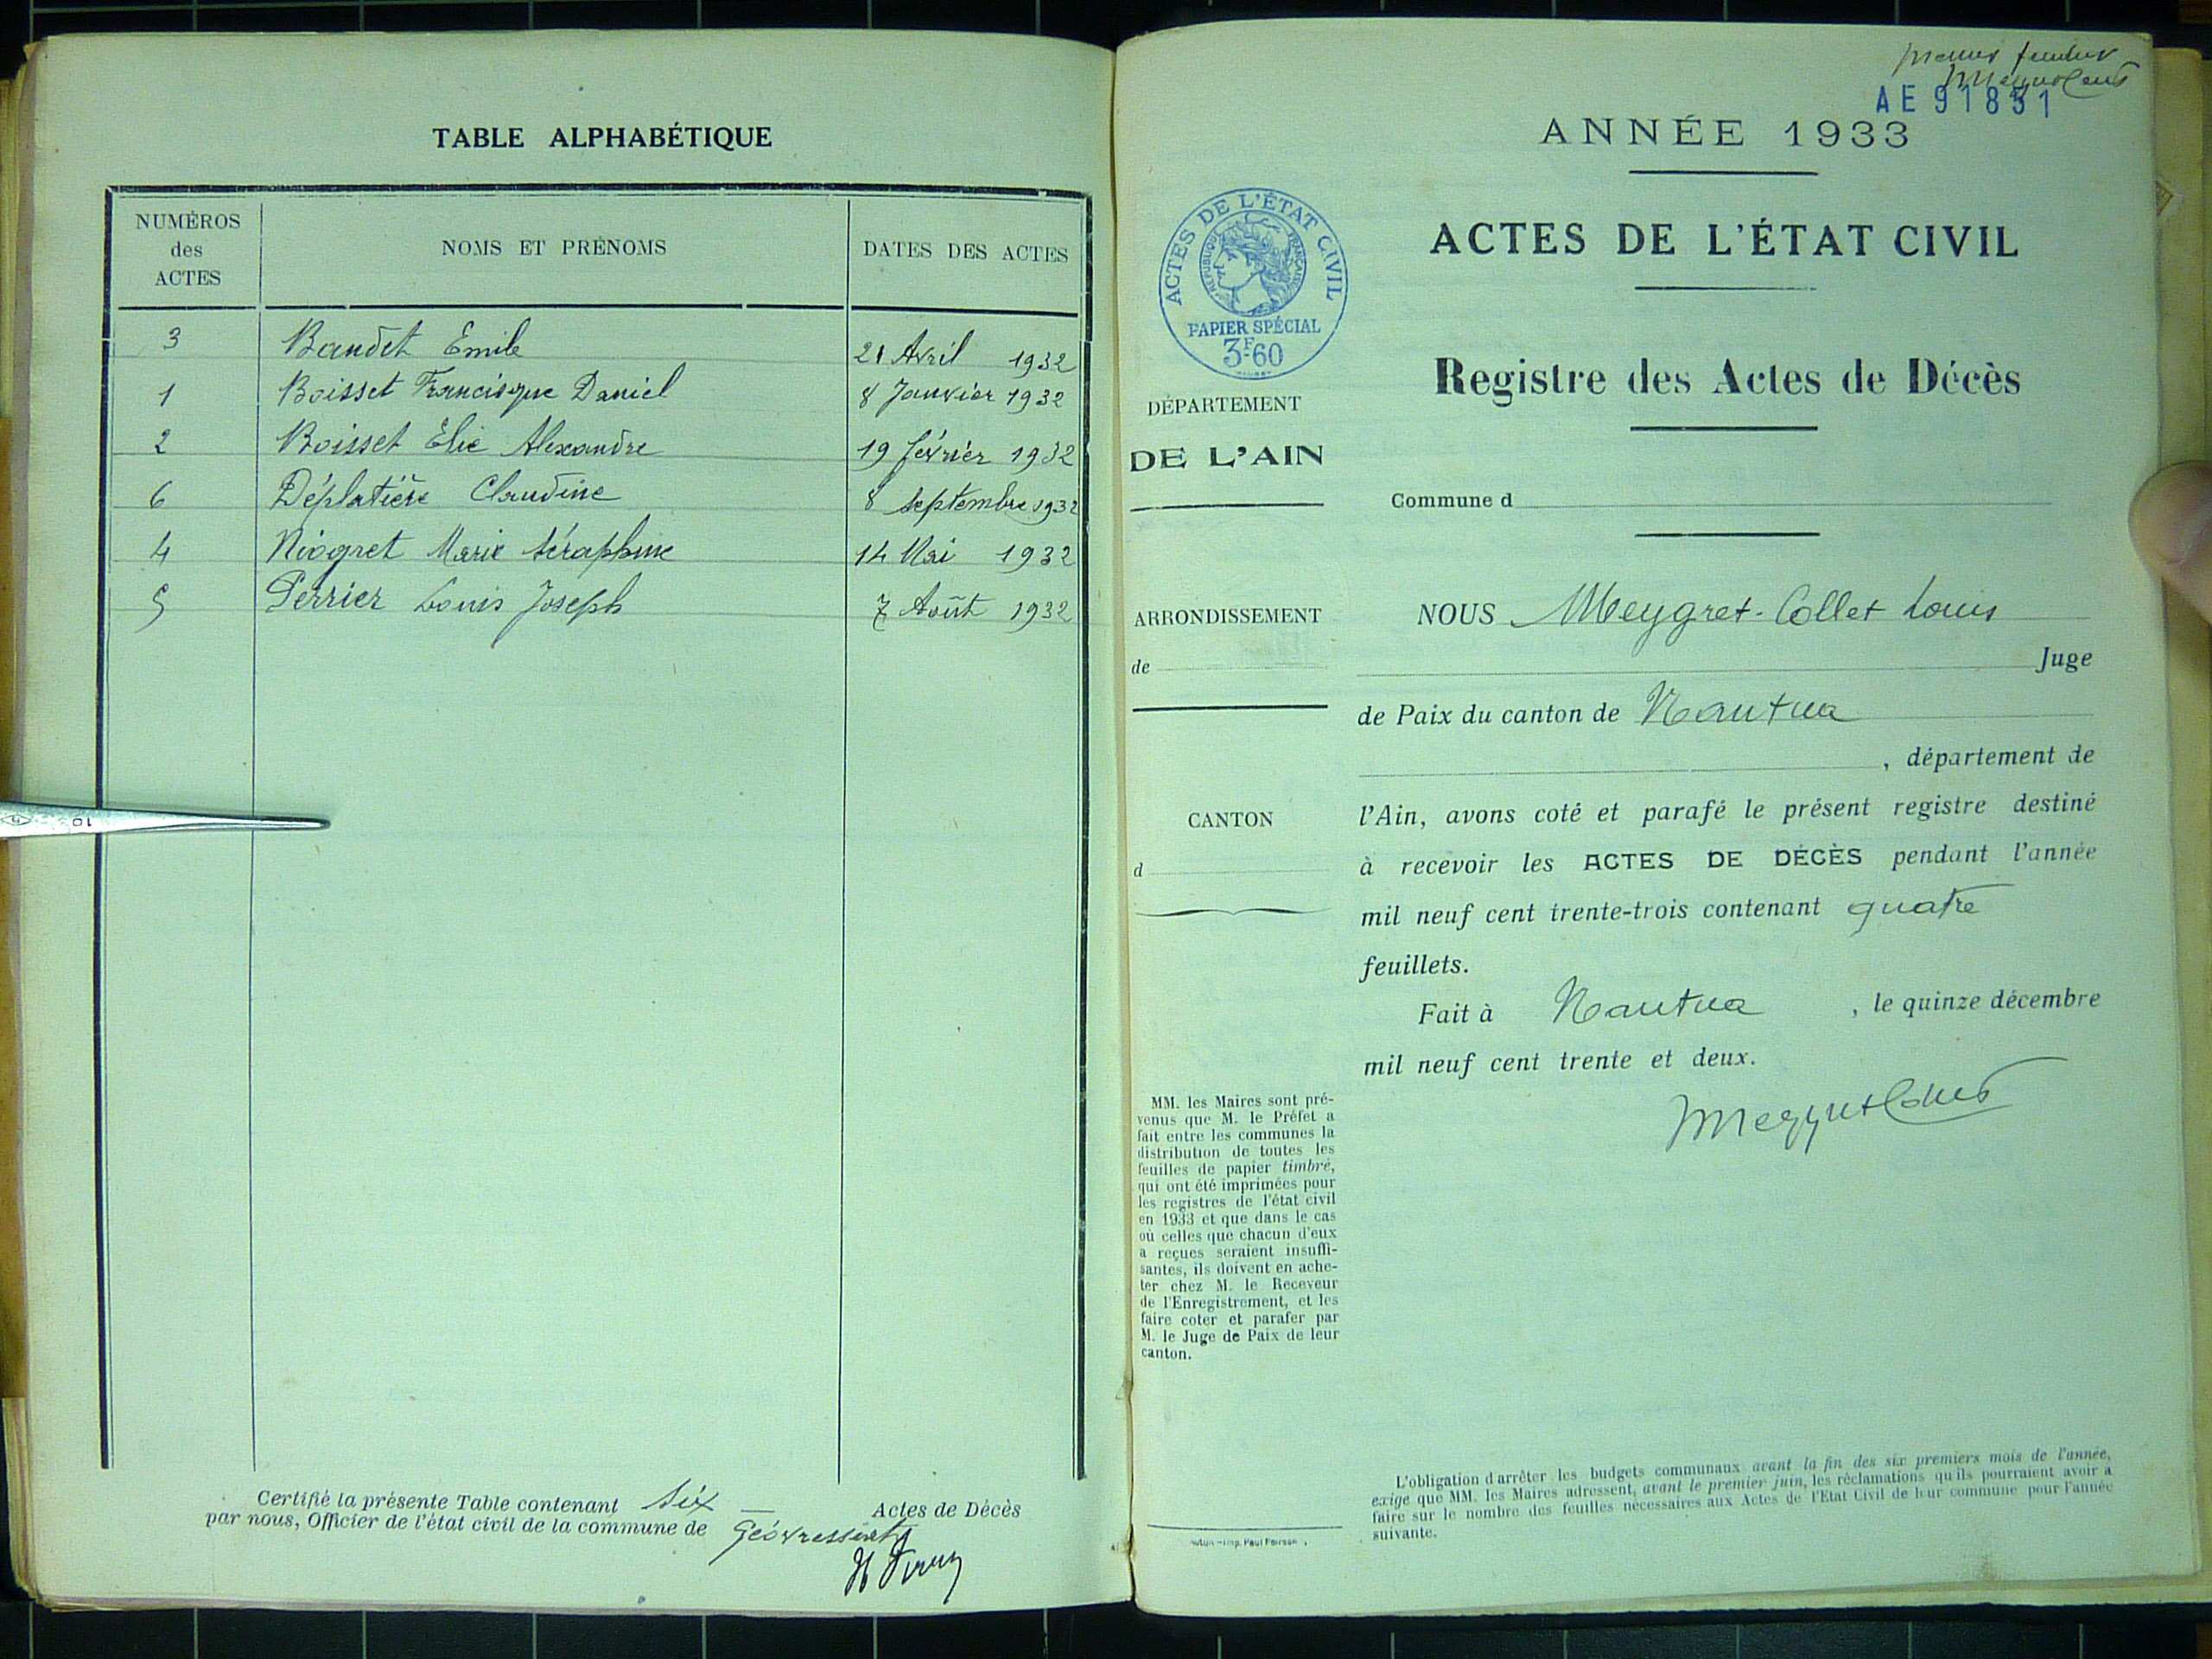 TABLE ALPHABÉTIQUE
NUMÉROS
des
ACTES
NOMS ET PRÉNOMS
DATES DES ACTES
3 Baudet Emile 21 Avril 1932
1 Boisset Francisque Daniel 8 Janvier 1932
2 Boisset Elie Alexandre 19 février 1932
6 Déplatière Claudine 8 septembre 1932
4 Niogret Marie Séraphine 14 Mai 1932
5 Perrier Louis Joseph 7 Août 1932
Certifié la présente Table contenant six Actes de Décès
par nous, Officier de l'état civil de la commune de Géovressiat
premier feuillet
AE 91851
ANNÉE 1933
ACTES DE L'ÉTAT CIVIL
RÉPUBLIQUE FRANÇAISE
PAPIER SPÉCIAL
3F60
DÉPARTEMENT
DE L'AIN
ARRONDISSEMENT
de
CANTON
d
MM. les Maires sont pré-
venus que M. le Préfet a
fait entre les communes la
distribution de toutes les
feuilles de papier timbré,
qui ont été imprimées pour
les registres de l'état civil
en 1933 et que dans le cas
où celles que chacun d'eux
a reçues seraient insuffi-
santes, ils doivent en ache-
ter chez M. le Receveur
de l'Enregistrement, et les
faire coter et parafer par
M. le Juge de Paix de leur
canton.
Imp. Paul
ACTES DE L'ÉTAT CIVIL
Registre des Actes de Décès
Commune d
NOUS Meygret-Collet Louis
Juge
de Paix du canton de Nantua
, département de
l'Ain, avons coté et parafé le présent registre destiné
à recevoir les ACTES DE DÉCÈS pendant l'année
mil neuf cent trente-trois contenant quatre
feuillets.
Fait à Nantua , le quinze décembre
mil neuf cent trente et deux.
L'obligation d'arrêter les budgets communaux avant la fin des six premiers mois de l'année,
exige que MM. les Maires adressent, avant le premier juin, les réclamations qu'ils pourraient avoir à
faire sur le nombre des feuilles nécessaires aux Actes de l'Etat Civil de leur commune pour l'année
suivante.